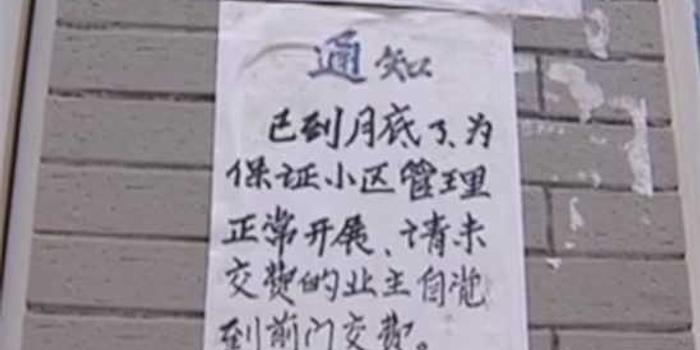 通知
已到月底了、为
保证小区管理
正常开展、请未
交费的业主自觉
到前门交费。